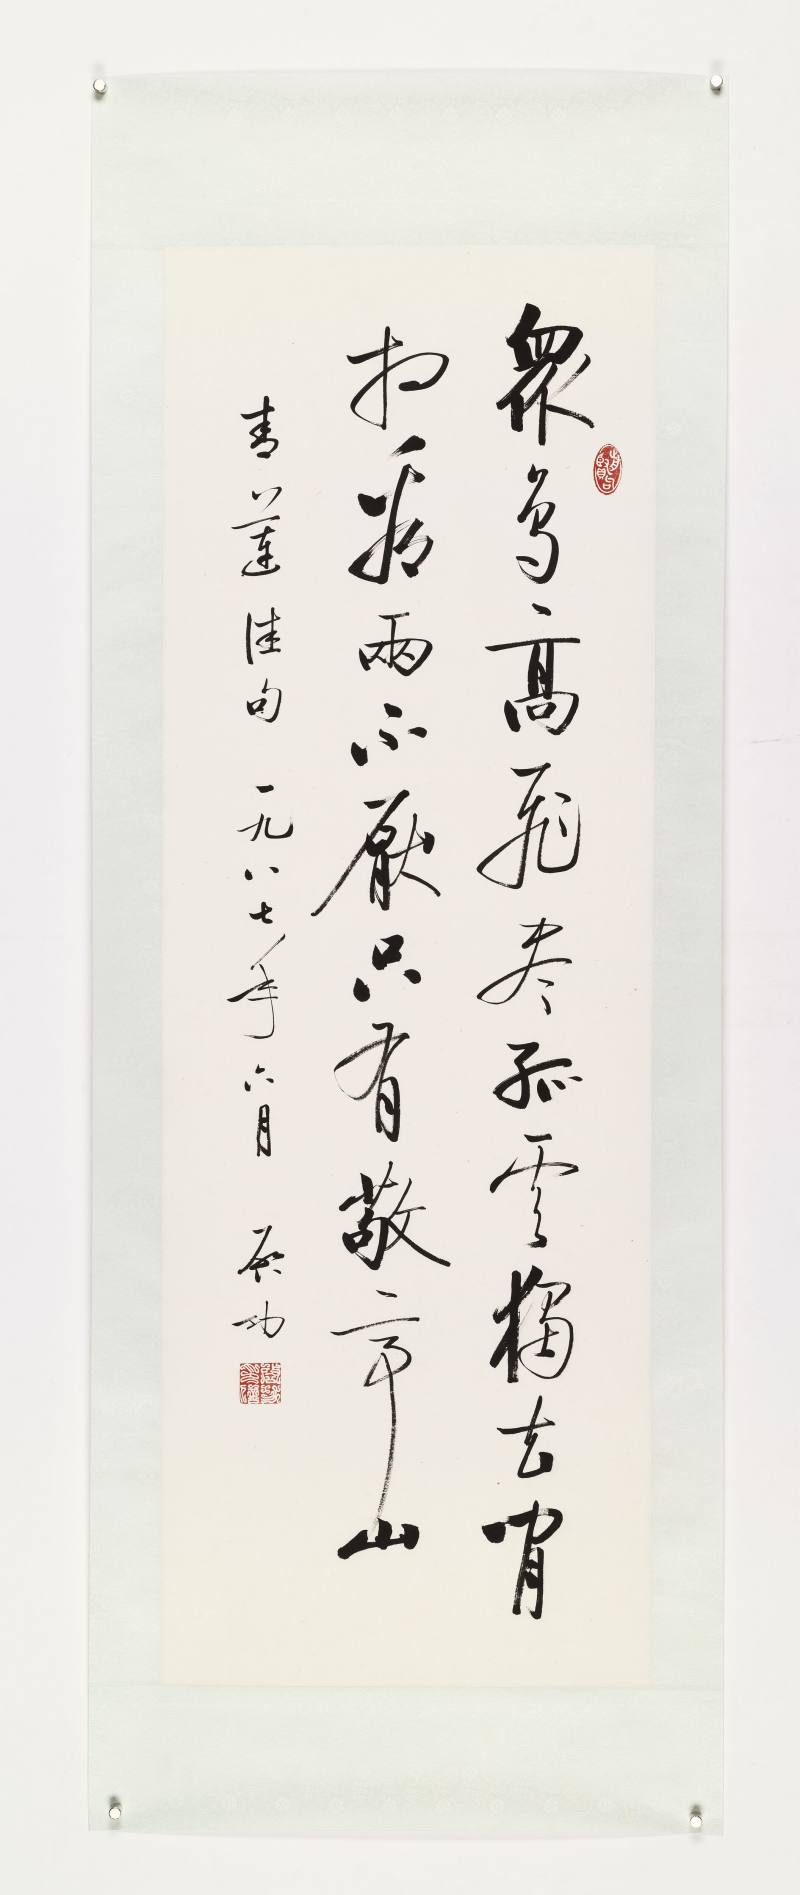 衆鳥高飛尽孤雲獨去閒
相看兩不厭只有敬亭山
青蓮佳句 一九八七年六月 啟功